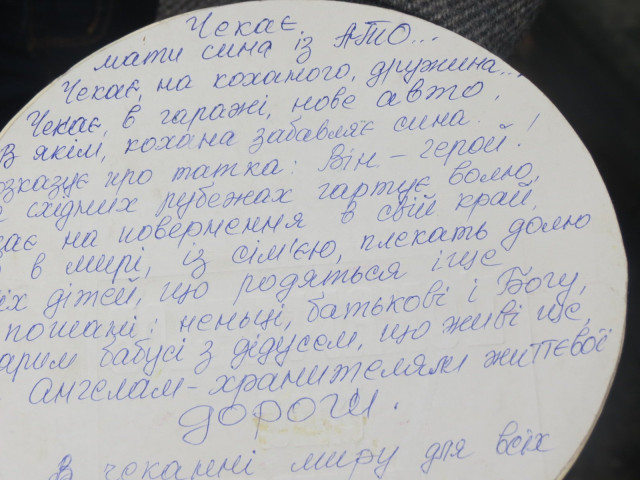 Чекає,
мати сина із АТО...
Чекає, на коханого, дружина...
Чекає, в гаражі, нове авто,
В якім, кохана забавляє сина.
озказує про татка: Він - герой!
східних рубежах гартує волю,
ає на повернення в свій край,
в мирі, із сім'єю, плекать долю
іх дітей, що родяться іще
пошані: неньці, батькові і Богу,
арим бабусі з дідусем, що живі ще,
Ангелам-хранителям життєвої
дороги.
В чеканні миру для всіх